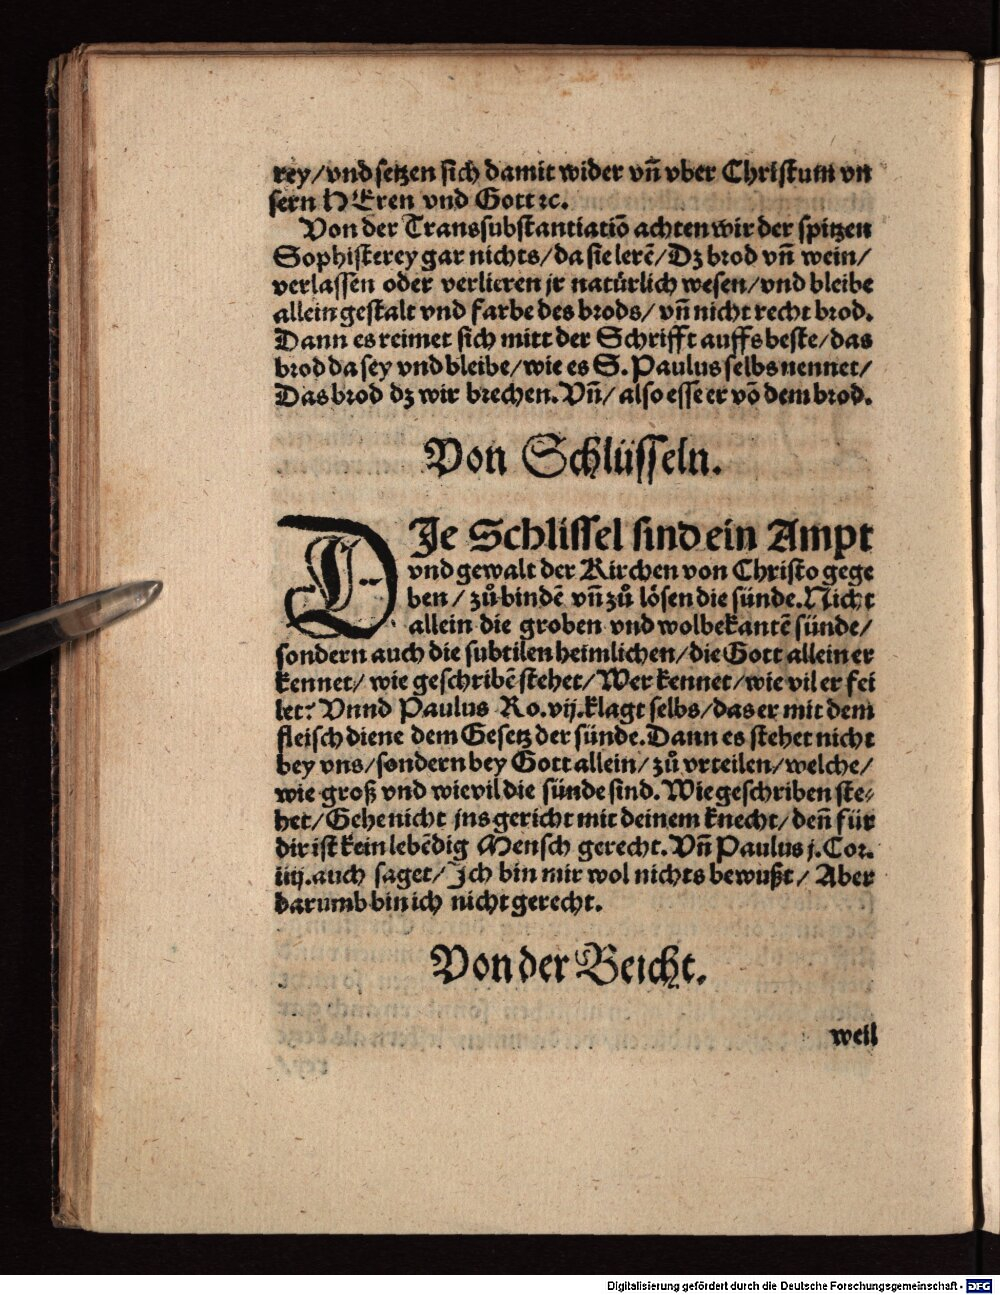 rey/vnd setzen sich damit wider vñ vber Christum vn
sern HEren vnd Gott ꝛc.
Von der Transsubstantiatiõ achten wir der spitzen
Sophisterey gar nichts/da sie lerẽ/Dz brod vñ wein/
verlassen oder verlieren jr natürlich wesen/vnd bleibe
allein gestalt vnd farbe des brods/vñ nicht recht brod.
Dann es reimet sich mitt der Schrifft auffs beste/das
brod da sey vnd bleibe/wie es S. Paulus selbs nennet/
Das brod dz wir brechen. Vñ/also esse er võ dem brod.
Von Schlüsseln.
DIe Schlüssel sind ein Ampt
vnd gewalt der Kirchen von Christo gege
ben/zů bindẽ vñ zů lösen die sünde. Nicht
allein die groben vnd wolbekantẽ sünde/
sondern auch die subtilen heimlichen/die Gott allein er
kennet/wie geschribẽ stehet/Wer kennet/wie vil er fei
let? Vnnd Paulus Ro. vij. klagt selbs/das er mit dem
fleisch diene dem Gesetz der sünde. Dann es stehet nicht
bey vns/sondern bey Gott allein/zů vrteilen/welche/
wie groß vnd wievil die sünde sind. Wie geschriben ste⸗
het/Gehe nicht jns gericht mit deinem knecht/deñ für
dir ist kein lebẽdig Mensch gerecht. Vñ Paulus j. Cor.
iiij. auch saget/Ich bin mir wol nichts bewußt/Aber
darumb bin ich nicht gerecht.
Von der Beicht.
weil
Digitalisierung gefördert durch die Deutsche Forschungsgemeinschaft - DFG